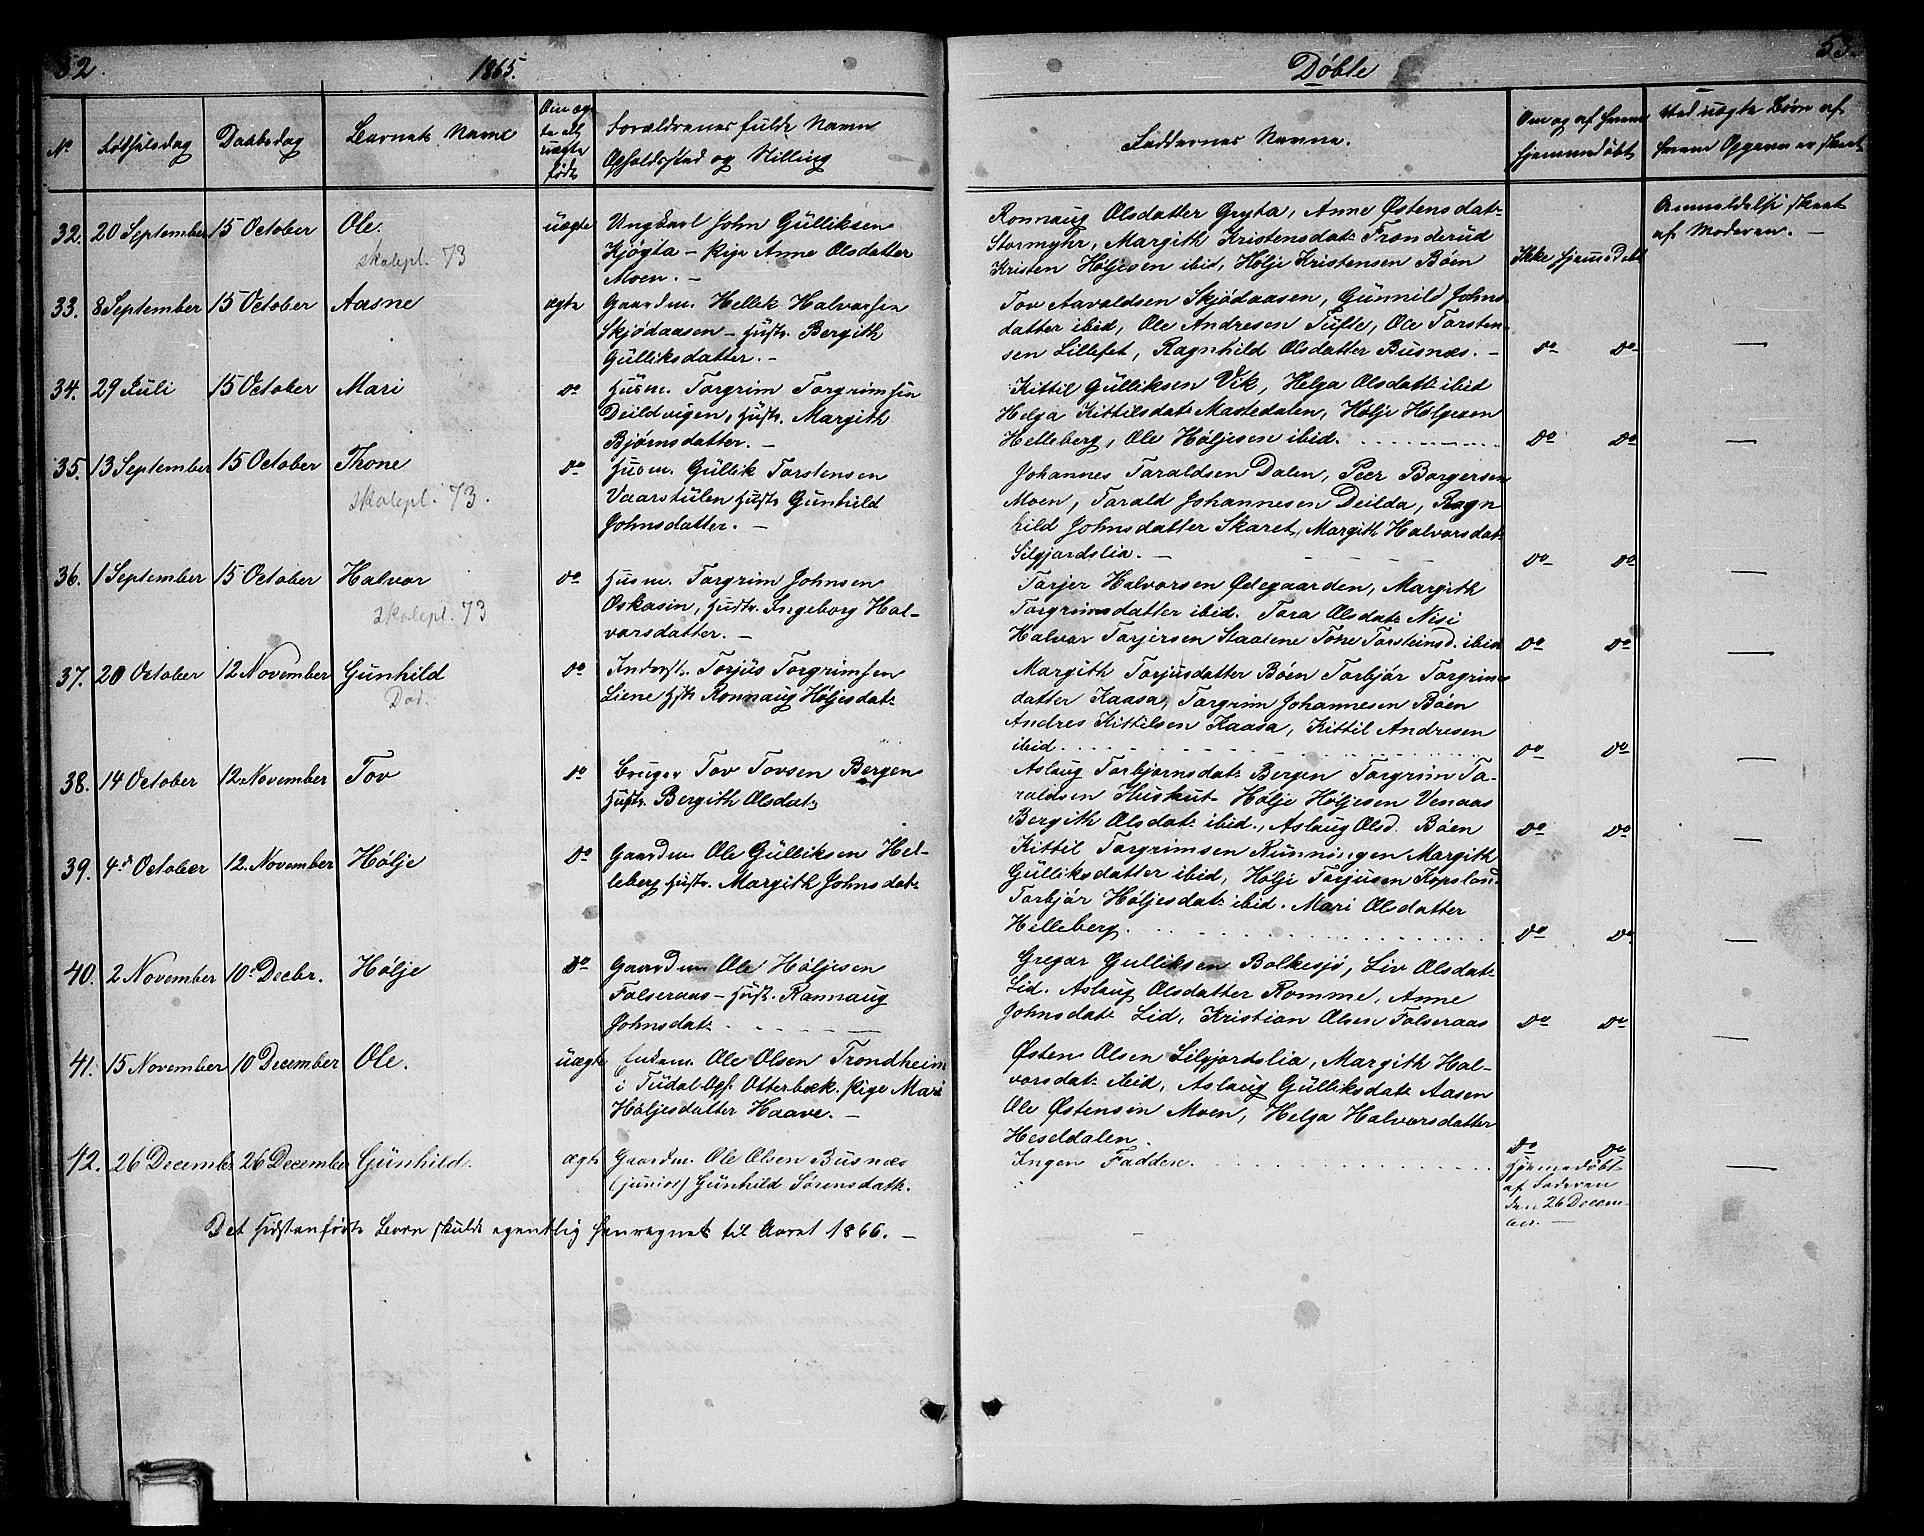 52.
1865.
Døbte
53.
No
Fødselsdag
Daabsdag
Barnets Navne
Om æg-
te ell.
uægte
født
Forældrenes fulde Navn
Opholdssted og Stilling
Faddernes Navne.
Om og af hvem
hjemmedøbt
Ved uægte Børn af
hvem Opgaven er skeet
32. 20 September 15 October Ole. uægte Ungkarl John Gulliksen
skolepl. 73 Kjøgta – Pige Anne Olsdatter
Moen. –
Ronnaug Olsdatter Gryta, Anne Østensdat:
Stormyhr, Margith Kristensdat: Tronderud
Kristen Høljesen ibid, Hølje Kristensen Bøen
Ikke hjemmedøbt
Anmeldelse skeet
af Moderen. –
33. 8 September 15 October Aasne ægte Gaardm. Hellik Halvorsen
Skjødaasen – Hustr. Bergith
Gulliksdatter. –
Tov Aavaldsen Skjødaasen, Gunnild Johns-
datter ibid, Ole Andresen Tufte, Ole Torsten-
sen Lillefet, Ragnhild Olsdatter Busnæs. – do do —
34. 29 Juli 15 October Mari do Husm. Torgrim Torgrimsen
Deildvigen, Hustr. Margith
Bjørnsdatter. –
Kittil Gulliksen Vik, Helga Olsdatt: ibid
Helga Kittilsdat: Mastedalen, Hølje Høljesen
Helleberg, Ole Høljesen ibid. do do —
35. 13 September 15 October Thone do Husm. Gullik Torstensen
skolepl. 73. Vaarstulen Hustr Gunhild
Johnsdatter. –
Johannes Taraldsen Dalen, Peer Borgersen
Moen, Tarald Johannesen Deilda, Ragn
hild Johnsdatter Skaret, Margith Halvorsdat:
Silgjordslia. – do do —
36. 1 September 15 October Halvor do Husm. Torgrim Johnsen
skolepl. 73 Oskasin, Hustr. Ingeborg Hal-
vorsdatter. –
Tarjer Halvorsen Ødegaarden, Margith
Torgrimsdatter ibid. Tora Olsdat: Nisi
Halvor Tarjersen Staalene Tone Torsteinsd. ibid do do —
37. 20 October 12 November Gunhild do Inderst. Torjus Torgrimsen
Død. Liene Hstr Ronnaug Høljesdat:
Margith Torjusdatter Bøen Torbjør Torgrims
datter Kaasa, Torgrim Johannesen Bøen
Andres Kittilsen Kaasa, Kittil Andresen
ibid. do do —
38. 14 October 12 November Tov do Bruger Tov Tovsen Bergen
Hustr. Bergith Olsdat:
Aslaug Torbjørnsdat: Bergen Torgrim Ta-
raldsen Huskut Hølje Høljesen Venaas
Bergith Olsdat: ibid., Aslaug Olsd. Bøen do do —
39. 4de October 12 November Hølje do Gaardm. Ole Gulliksen Hel-
leberg Hustr. Margith Johnsdat:
Kittil Torgrimsen Runningen Margith
Gulliksdatter ibid, Hølje Torjusen Kopsland
Torbjør Høljesdat: ibid. Mari Olsdatter
Helleberg. do do —
40. 2 November 10 Decbr. Hølje do Gaardm Ole Høljesen
Folseraas – Hustr. Rannaug
Johnsdat:
Gregar Gulliksen Bolkesjø, Liv Olsdat:
Lid. Aslaug Olsdatter Romme, Anne
Johnsdat: Lid, Kristian Olsen Folseraas do do —
41. 15 November 10 December Ole. uægte Ole Olsen Trondheim
i Tudal Otterbæk. Pige Mari
Høljesdatter Haave. –
Østen Olsen Silgjordslia, Margith Hal-
vorsdat: ibid, Aslaug Gulliksdat: Aasen
Ole Østensen Moen, Helga Halvorsdatter
Heseldalen. do do —
42. 26 December 26 December Gunhild. ægte Gaardm. Ole Olsen Busnæs
(junior) Gunhild Sørensdath.
Ingen Faddere.
Hjemmedøbt
af Faderen
den 26 Decem-
ber. –
—
Det sidstanførte Barn skulde egentlig henregnes til Aaret 1866. –